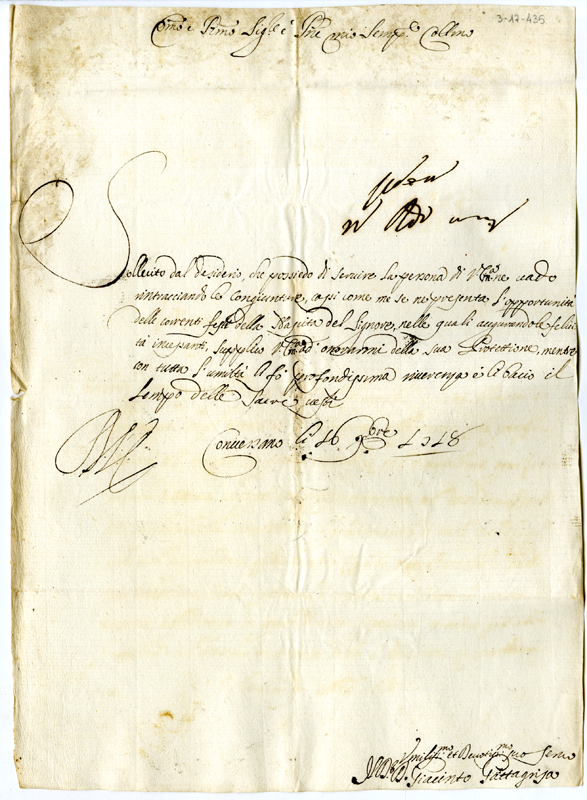 3-17-435
Emo e Rmo Sig.re e Pne mio Semp.e Collmo
Sollecito dal desiderio, che possiedo di servire la persona di V. Em.ne vado
rintracciando le Congiunture, e così come me se ne presenta l'opportunità
delle correnti feste della Nascita del Signore, nelle quali augurandole felici
tà incessanti, supplico V. Em.za d'onorarmi della sua Protettione, mentre
con tutta l'umiltà le fò profondissima riverenza e le bacio il
lembo delle Sacre vesti
Conversano li 16 9bre 1718
Umiliss.mo et Devotiss.mo suo Servo
Giacinto